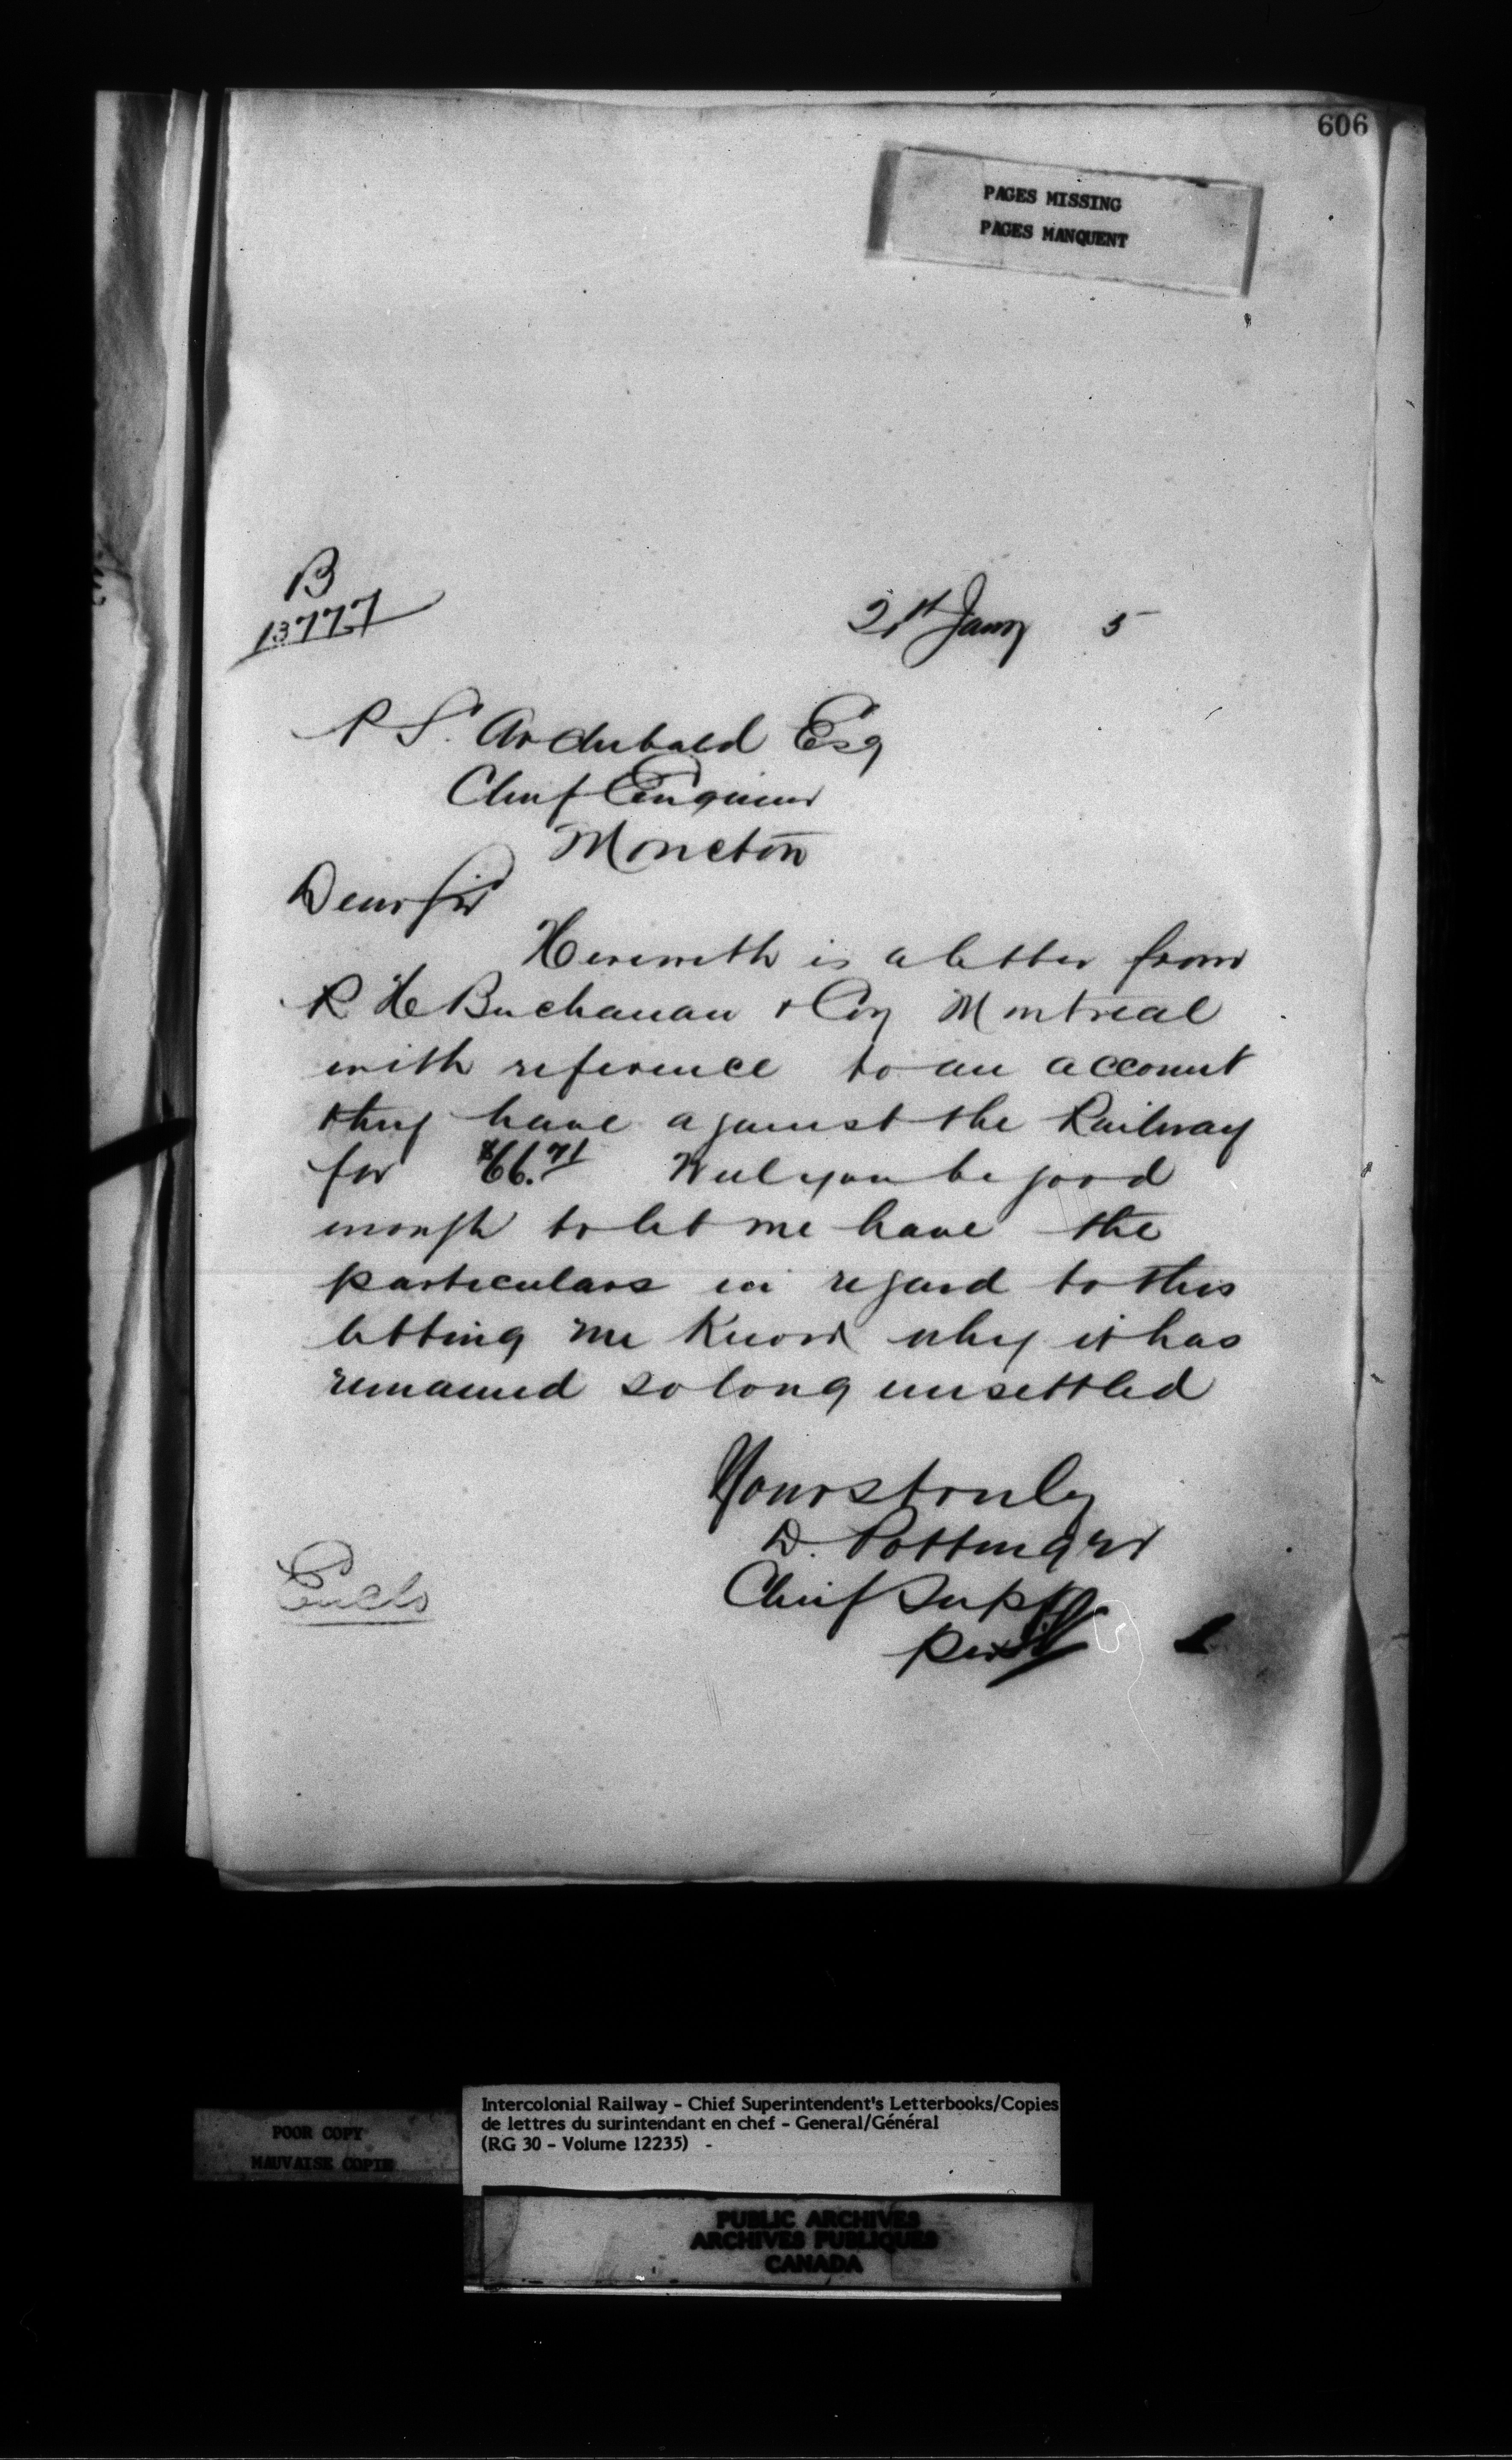 606
PAGES MISSING
PAGES MANQUENT
B
13777
21st Jany 5
P S. Archibald Esq
Chief Engineer
Moncton
Dear Sir
Herewith is a letter from
R H Buchanan & Coy Montreal
with reference to an account
they have against the Railway
for $66.71 Will you be good
enough to let me have the
particulars in regard to this
letting me know why it has
remained so long unsettled
Yours truly
D. Pottinger
Chief Supt
Encls
POOR COPY
MAUVAISE COPIE
Intercolonial Railway - Chief Superintendent's Letterbooks/Copies
de lettres du surintendant en chef - General/Général
(RG 30 - Volume 12235) -
PUBLIC ARCHIVES
ARCHIVES PUBLIQUES
CANADA